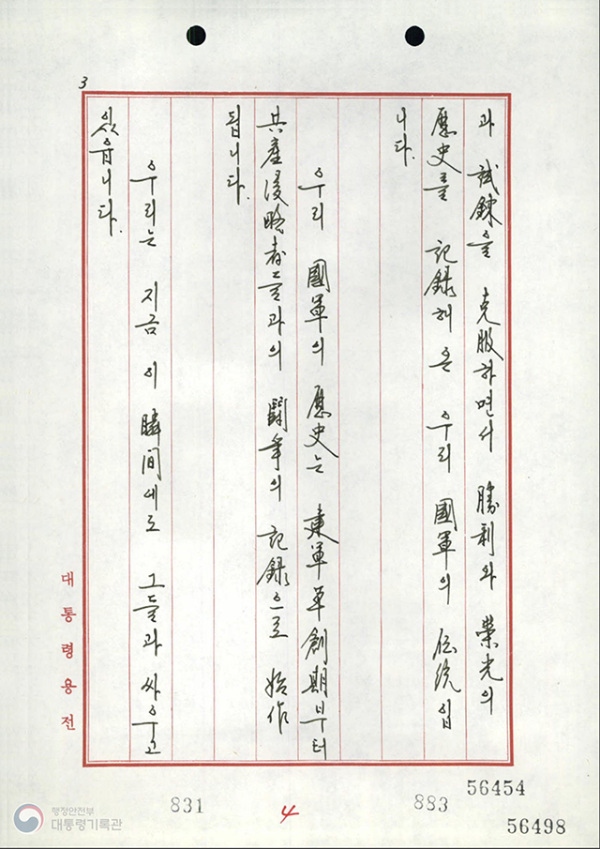 3
과 試鍊을 克服하면서 勝利와 榮光의
歷史를 記錄해 온 우리 國軍의 傳統입
니다.
우리 國軍의 歷史는 建軍草創期부터
共産侵略者들과의 鬪爭의 記錄으로 始作
됩니다.
우리는 지금 이 瞬間에도 그들과 싸우고
있읍니다.
대통령용전
56454
831
4
883
56498
행정안전부
대통령기록관